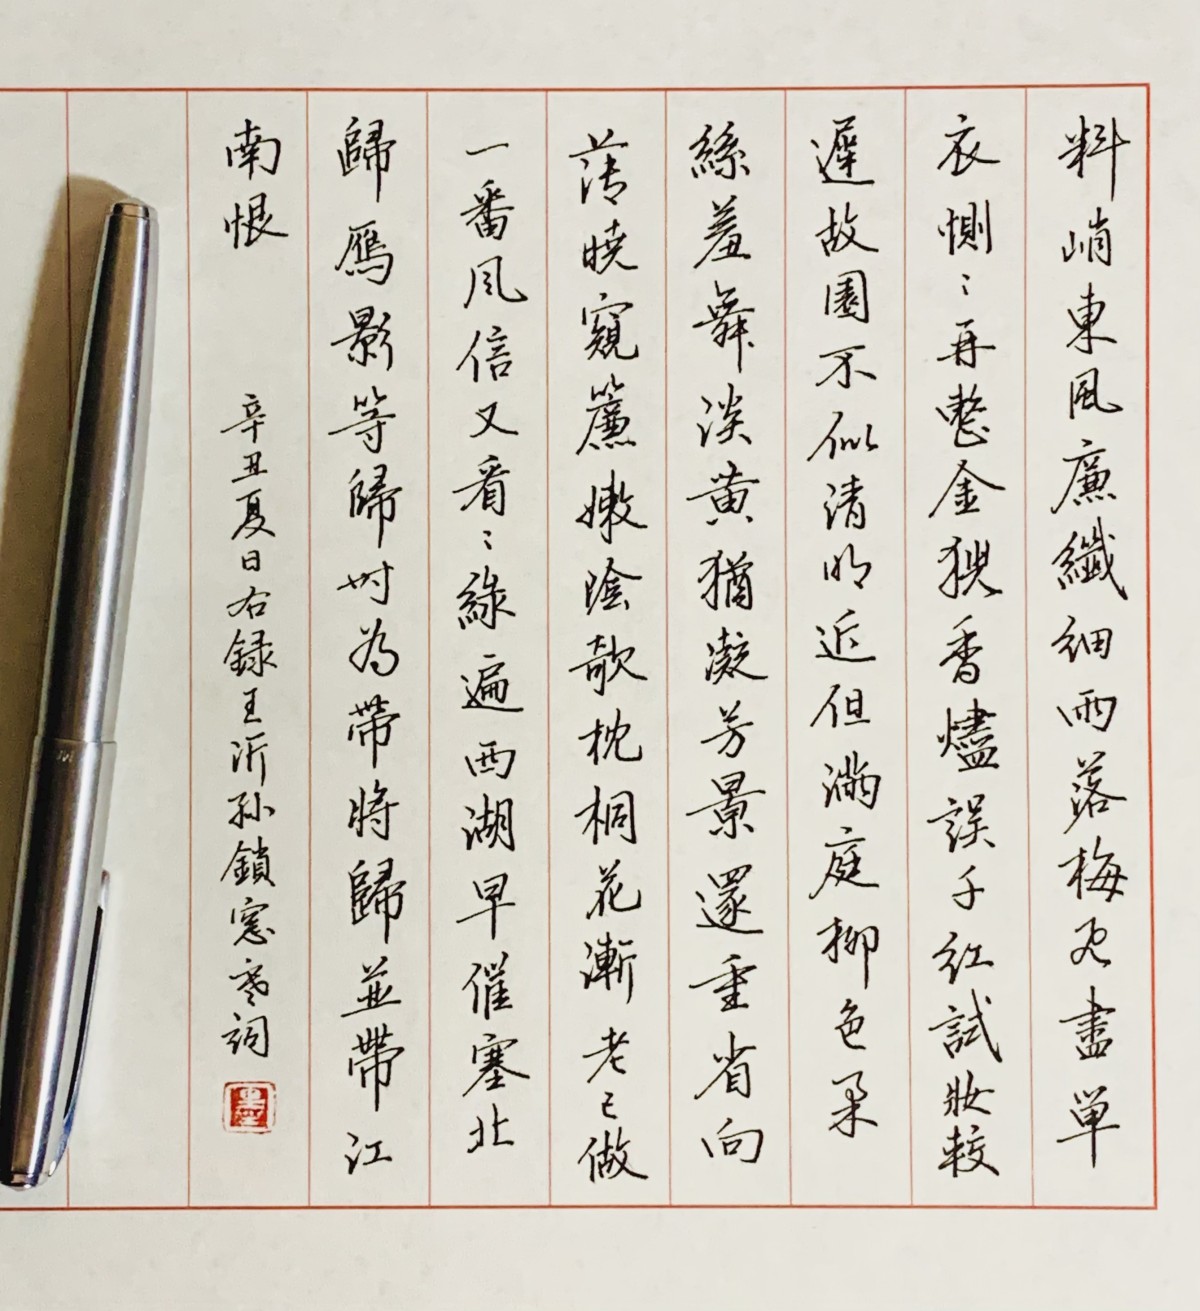 料峭東風廉纖細雨落梅飛盡單
衣惻〻再整金猊香燼誤千紅試妝較
遲故園不似清明近但滿庭柳色柔
絲羞舞淡黄猶凝芳景還重省向
薄曉窺簾嫩陰欹枕桐花漸老已做
一番風信又看〻綠遍西湖早催塞北
歸鴈影等歸時為帶將歸並帶江
南恨
辛丑夏日右録王沂孙鎖窓寒詞